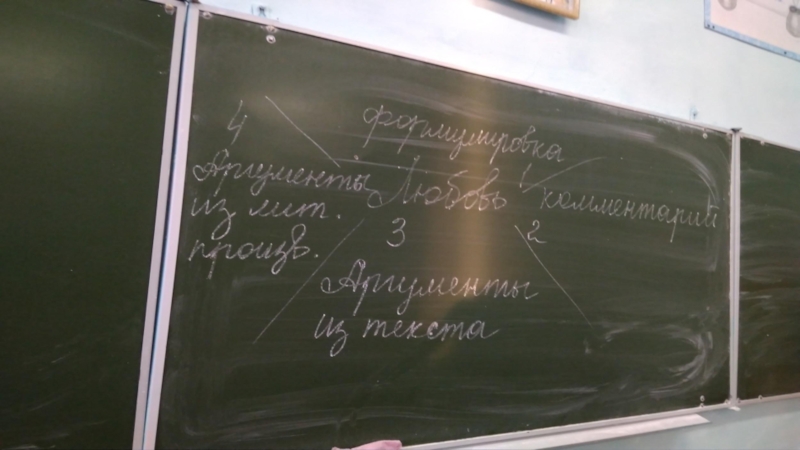 4
формулировка
Аргументы
из лит.
произв.
Любовь
1
комментарий
3
2
Аргументы
из текста